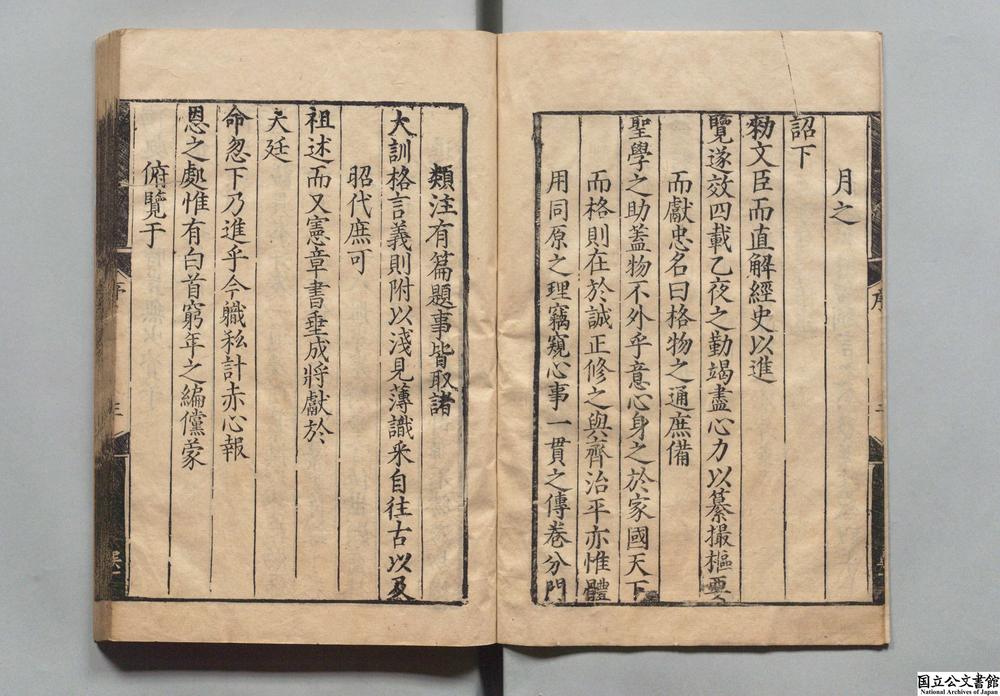 月之
詔下
勑文臣而直解經史以進
覽遂效四載乙夜之勤竭盡心力以纂撮樞要
而獻忠名曰格物之通庶備
聖學之助蓋物不外乎意心身之於家國天下
而格則在於誠正修之與齊治平亦惟體
用同原之理竊窺心事一貫之傳卷分門
類注有篇題事皆取諸
大訓格言義則附以淺見薄識釆自往古以及
昭代庶可
祖述而又憲章書垂成將獻於
天廷
命忽下乃進乎今職私計赤心報
恩之處惟有白首窮年之編儻蒙
俯覽于
序
三
序
国立公文書館
National Archives of Japan